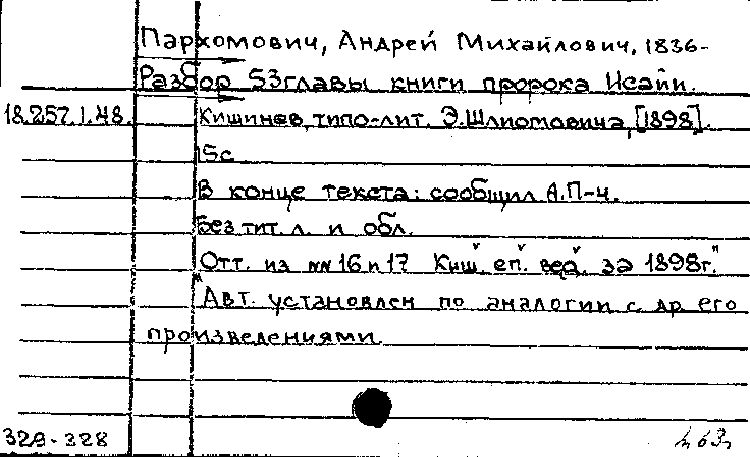 Пархомович, Андрей Михайлович, 1836-
Разбор 53 главы книги пророка Исайи.
18.257.1.48. Кишинев, типо-лит. Э.Шлиомовича, [1898].
15с
В конце текста: сообщил А.П-ч.
Без тит. л. и обл.
Отт. из №№ 16 и 17 "Киш. еп. вед. за 1898г."
Авт. установлен по аналогии с др его
произведениями.
329-328